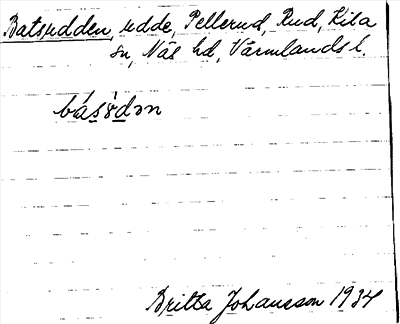 Batsudden, udde, Pellerud, Rud, Kila
sn, Näs hd, Värmlands l.
báso̊dən
Britta Johansson 1934